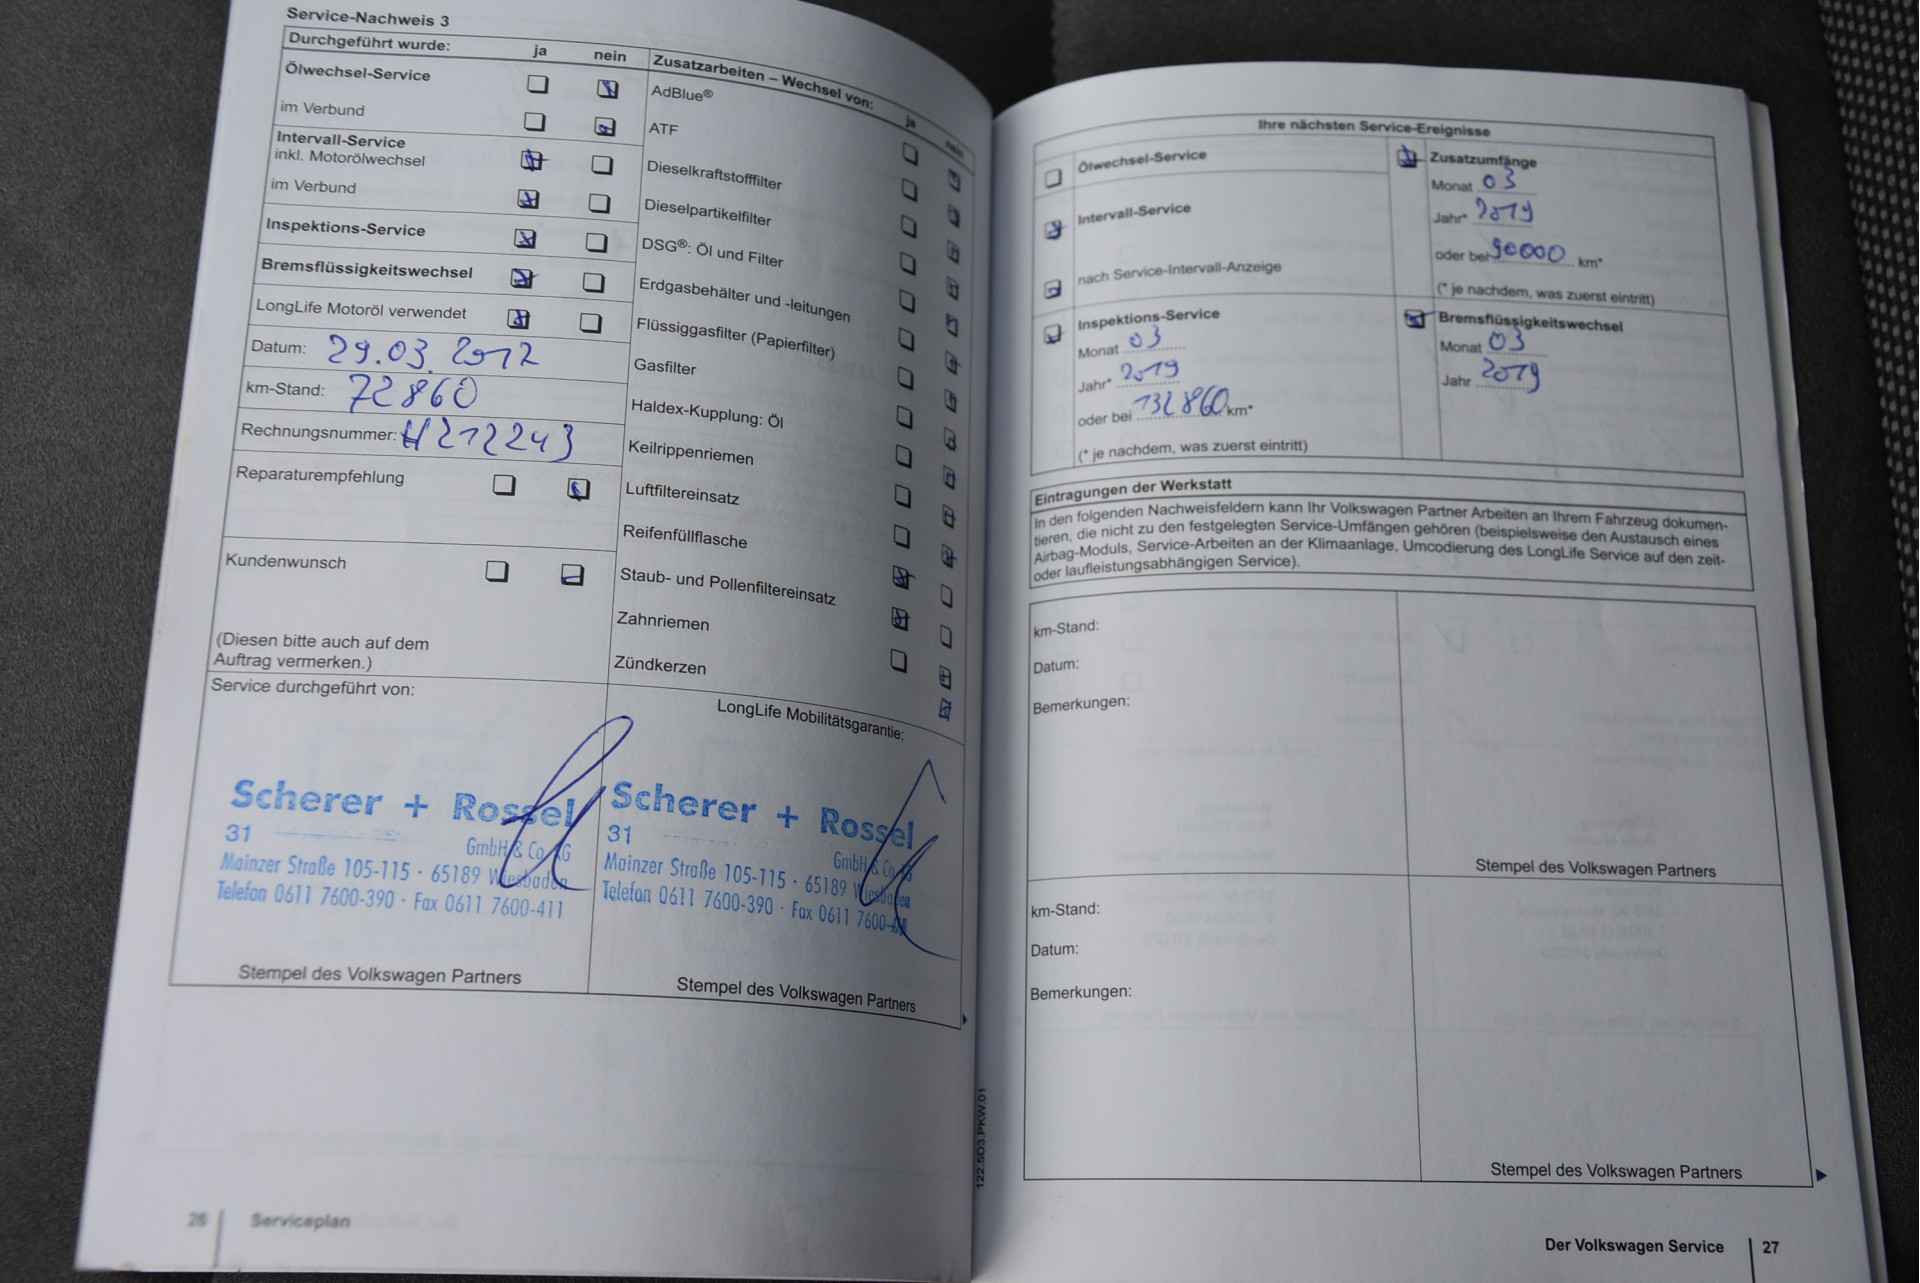 Service-Nachweis 3
Durchgeführt wurde: ja nein
Ölwechsel-Service
im Verbund
Intervall-Service
inkl. Motorölwechsel
im Verbund
Inspektions-Service
Bremsflüssigkeitswechsel
LongLife Motoröl verwendet
Datum: 29.03.2017
km-Stand: 72860
Rechnungsnummer: H212243
Reparaturempfehlung
Kundenwunsch
(Diesen bitte auch auf dem
Auftrag vermerken.)
Zusatzarbeiten – Wechsel von: ja nein
AdBlue®
ATF
Dieselkraftstofffilter
Dieselpartikelfilter
DSG®: Öl und Filter
Erdgasbehälter und -leitungen
Flüssiggasfilter (Papierfilter)
Gasfilter
Haldex-Kupplung: Öl
Keilrippenriemen
Luftfiltereinsatz
Reifenfüllflasche
Staub- und Pollenfiltereinsatz
Zahnriemen
Zündkerzen
Service durchgeführt von:
Scherer + Rossel
31
GmbH & Co KG
Mainzer Straße 105-115 · 65189 Wiesbaden
Telefon 0611 7600-390 · Fax 0611 7600-411
Stempel des Volkswagen Partners
LongLife Mobilitätsgarantie:
Scherer + Rossel
31
GmbH & Co KG
Mainzer Straße 105-115 · 65189 Wiesbaden
Telefon 0611 7600-390 · Fax 0611 7600-411
Stempel des Volkswagen Partners
26 Serviceplan
122.5O3.PKW.01
Ihre nächsten Service-Ereignisse
Ölwechsel-Service
Intervall-Service
nach Service-Intervall-Anzeige
Inspektions-Service
Monat 03
Jahr* 2019
oder bei 132860 km*
(* je nachdem, was zuerst eintritt)
Zusatzumfänge
Monat 03
Jahr* 2019
oder bei 90000 km*
(* je nachdem, was zuerst eintritt)
Bremsflüssigkeitswechsel
Monat 03
Jahr 2019
Eintragungen der Werkstatt
In den folgenden Nachweisfeldern kann Ihr Volkswagen Partner Arbeiten an Ihrem Fahrzeug dokumen-
tieren, die nicht zu den festgelegten Service-Umfängen gehören (beispielsweise den Austausch eines
Airbag-Moduls, Service-Arbeiten an der Klimaanlage, Umcodierung des LongLife Service auf den zeit-
oder laufleistungsabhängigen Service).
km-Stand:
Datum:
Bemerkungen:
Stempel des Volkswagen Partners
km-Stand:
Datum:
Bemerkungen:
Stempel des Volkswagen Partners
Der Volkswagen Service 27